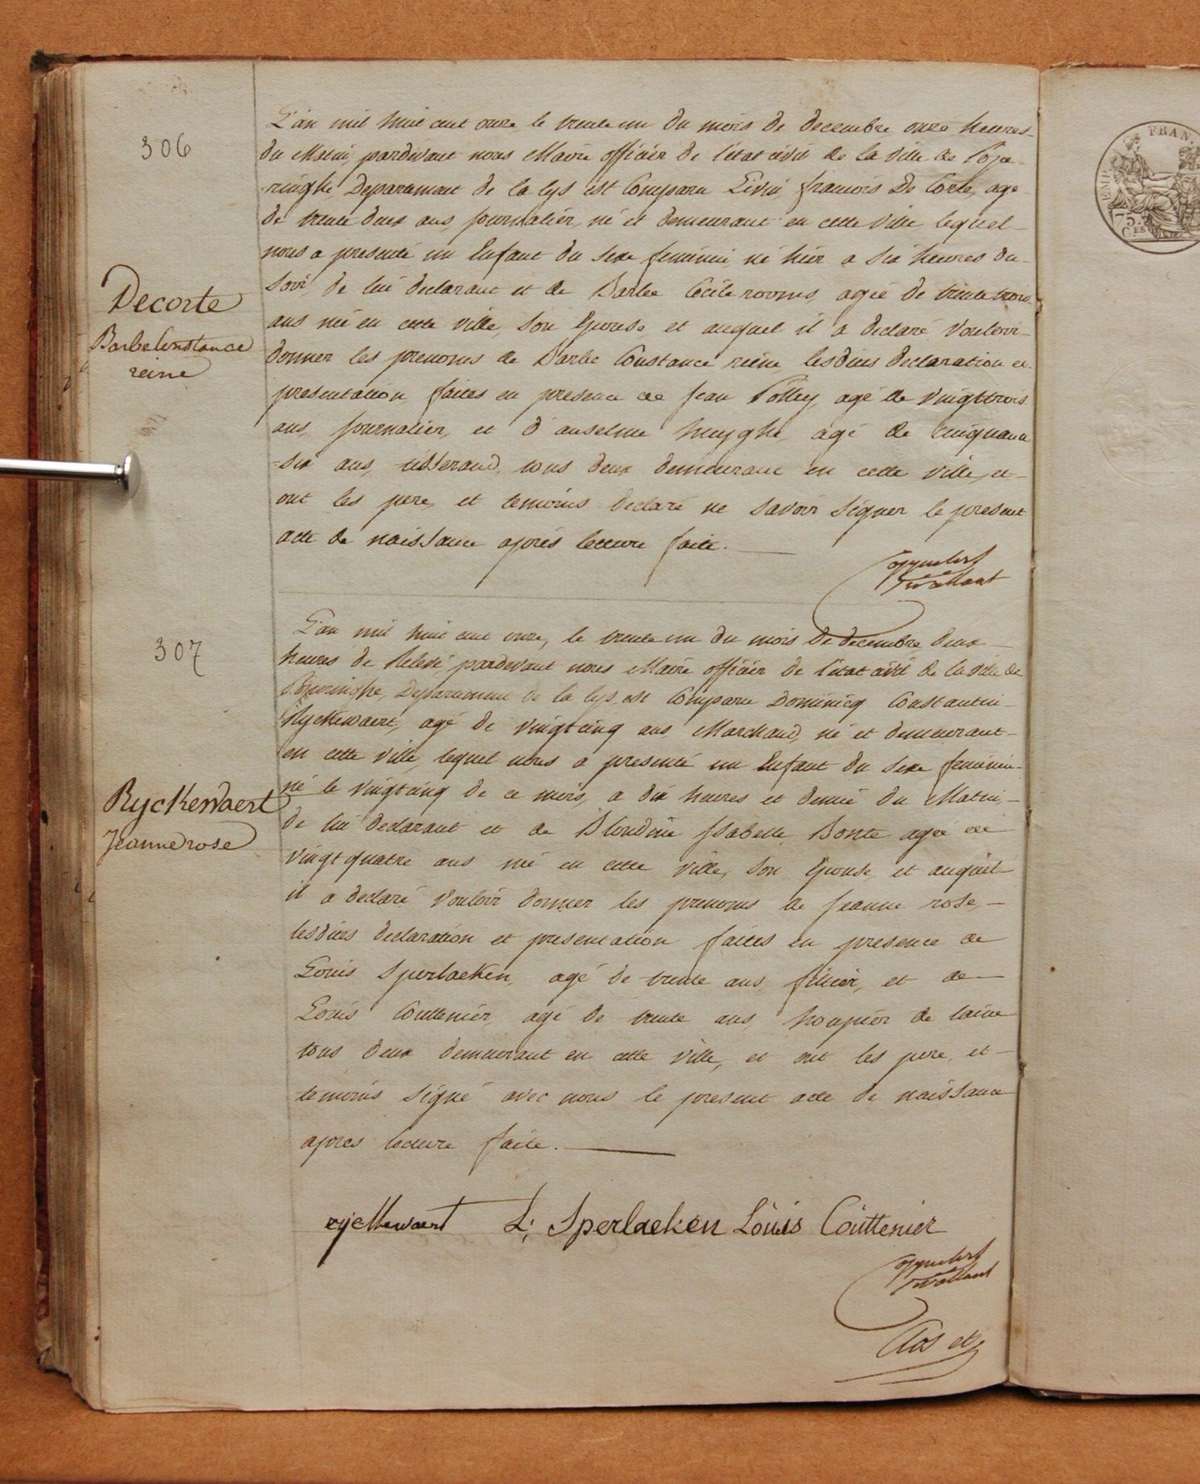 306
L'an mil huit cent onze le trente un du mois de decembre onze heures
du Matin, pardevant nous Maire officier de l'état civil de la ville de Pope-
-ringhe, Departement de la Lys est Comparu Livin francois De Corte, agé
de trente deux ans journalier, né et demeurant en cette ville lequel
nous a presenté un Enfant du sexe feminin né hier a six heures du
soir de lui declarant et de Barbe Cécile rooms, agée de trente trois
ans née en cette ville, son Epouse et auquel il a declaré vouloir
donner les prenoms de Barbe Constance reine lesdites declaration et
presentation faites en presence de jean Polley, agé de vingt trois
ans, journalier, et d'anselme huyghe agé de cinquante
-six ans, tisserand, tous deux demeurant en cette ville, et
ont les pere, et temoins declaré ne savoir signer le present
acte de naissance après lecture faite.
Decorte
Barbe Constance
reine
307
L'an mil huit cent onze, le trente un du mois de decembre deux
heures de Relevé pardevant nous Maire officier de l'état civil de la ville de
Poperinghe, Departement de la Lys, est Comparu Dominicq Constantin
Ryckewaert, agé de vingt cinq ans Marchand, né et demeurant
en cette ville, lequel nous a presenté un Enfant du sexe feminin
né le vingt cinq de ce mois, a dix heures et demie du Matin,
de lui declarant et de Blondine Isabelle Bonte agée de
vingt quatre ans née en cette ville, son Epouse, et auquel
il a declaré vouloir donner les prenoms de jeanne rose,
lesdites declaration et presentation faites en presence de
Louis Sperlaeken, agé de trente ans, et de
Louis Couttenier, agé de trente ans houpier de laine
tous deux demeurant en cette ville, et ont les pere, et
temoins signé avec nous le present acte de naissance
après lecture faite.
Ryckewaert
Jeanne rose
ryckewaert L. Sperlaeken Louis Couttenier
Clos et
FRAN